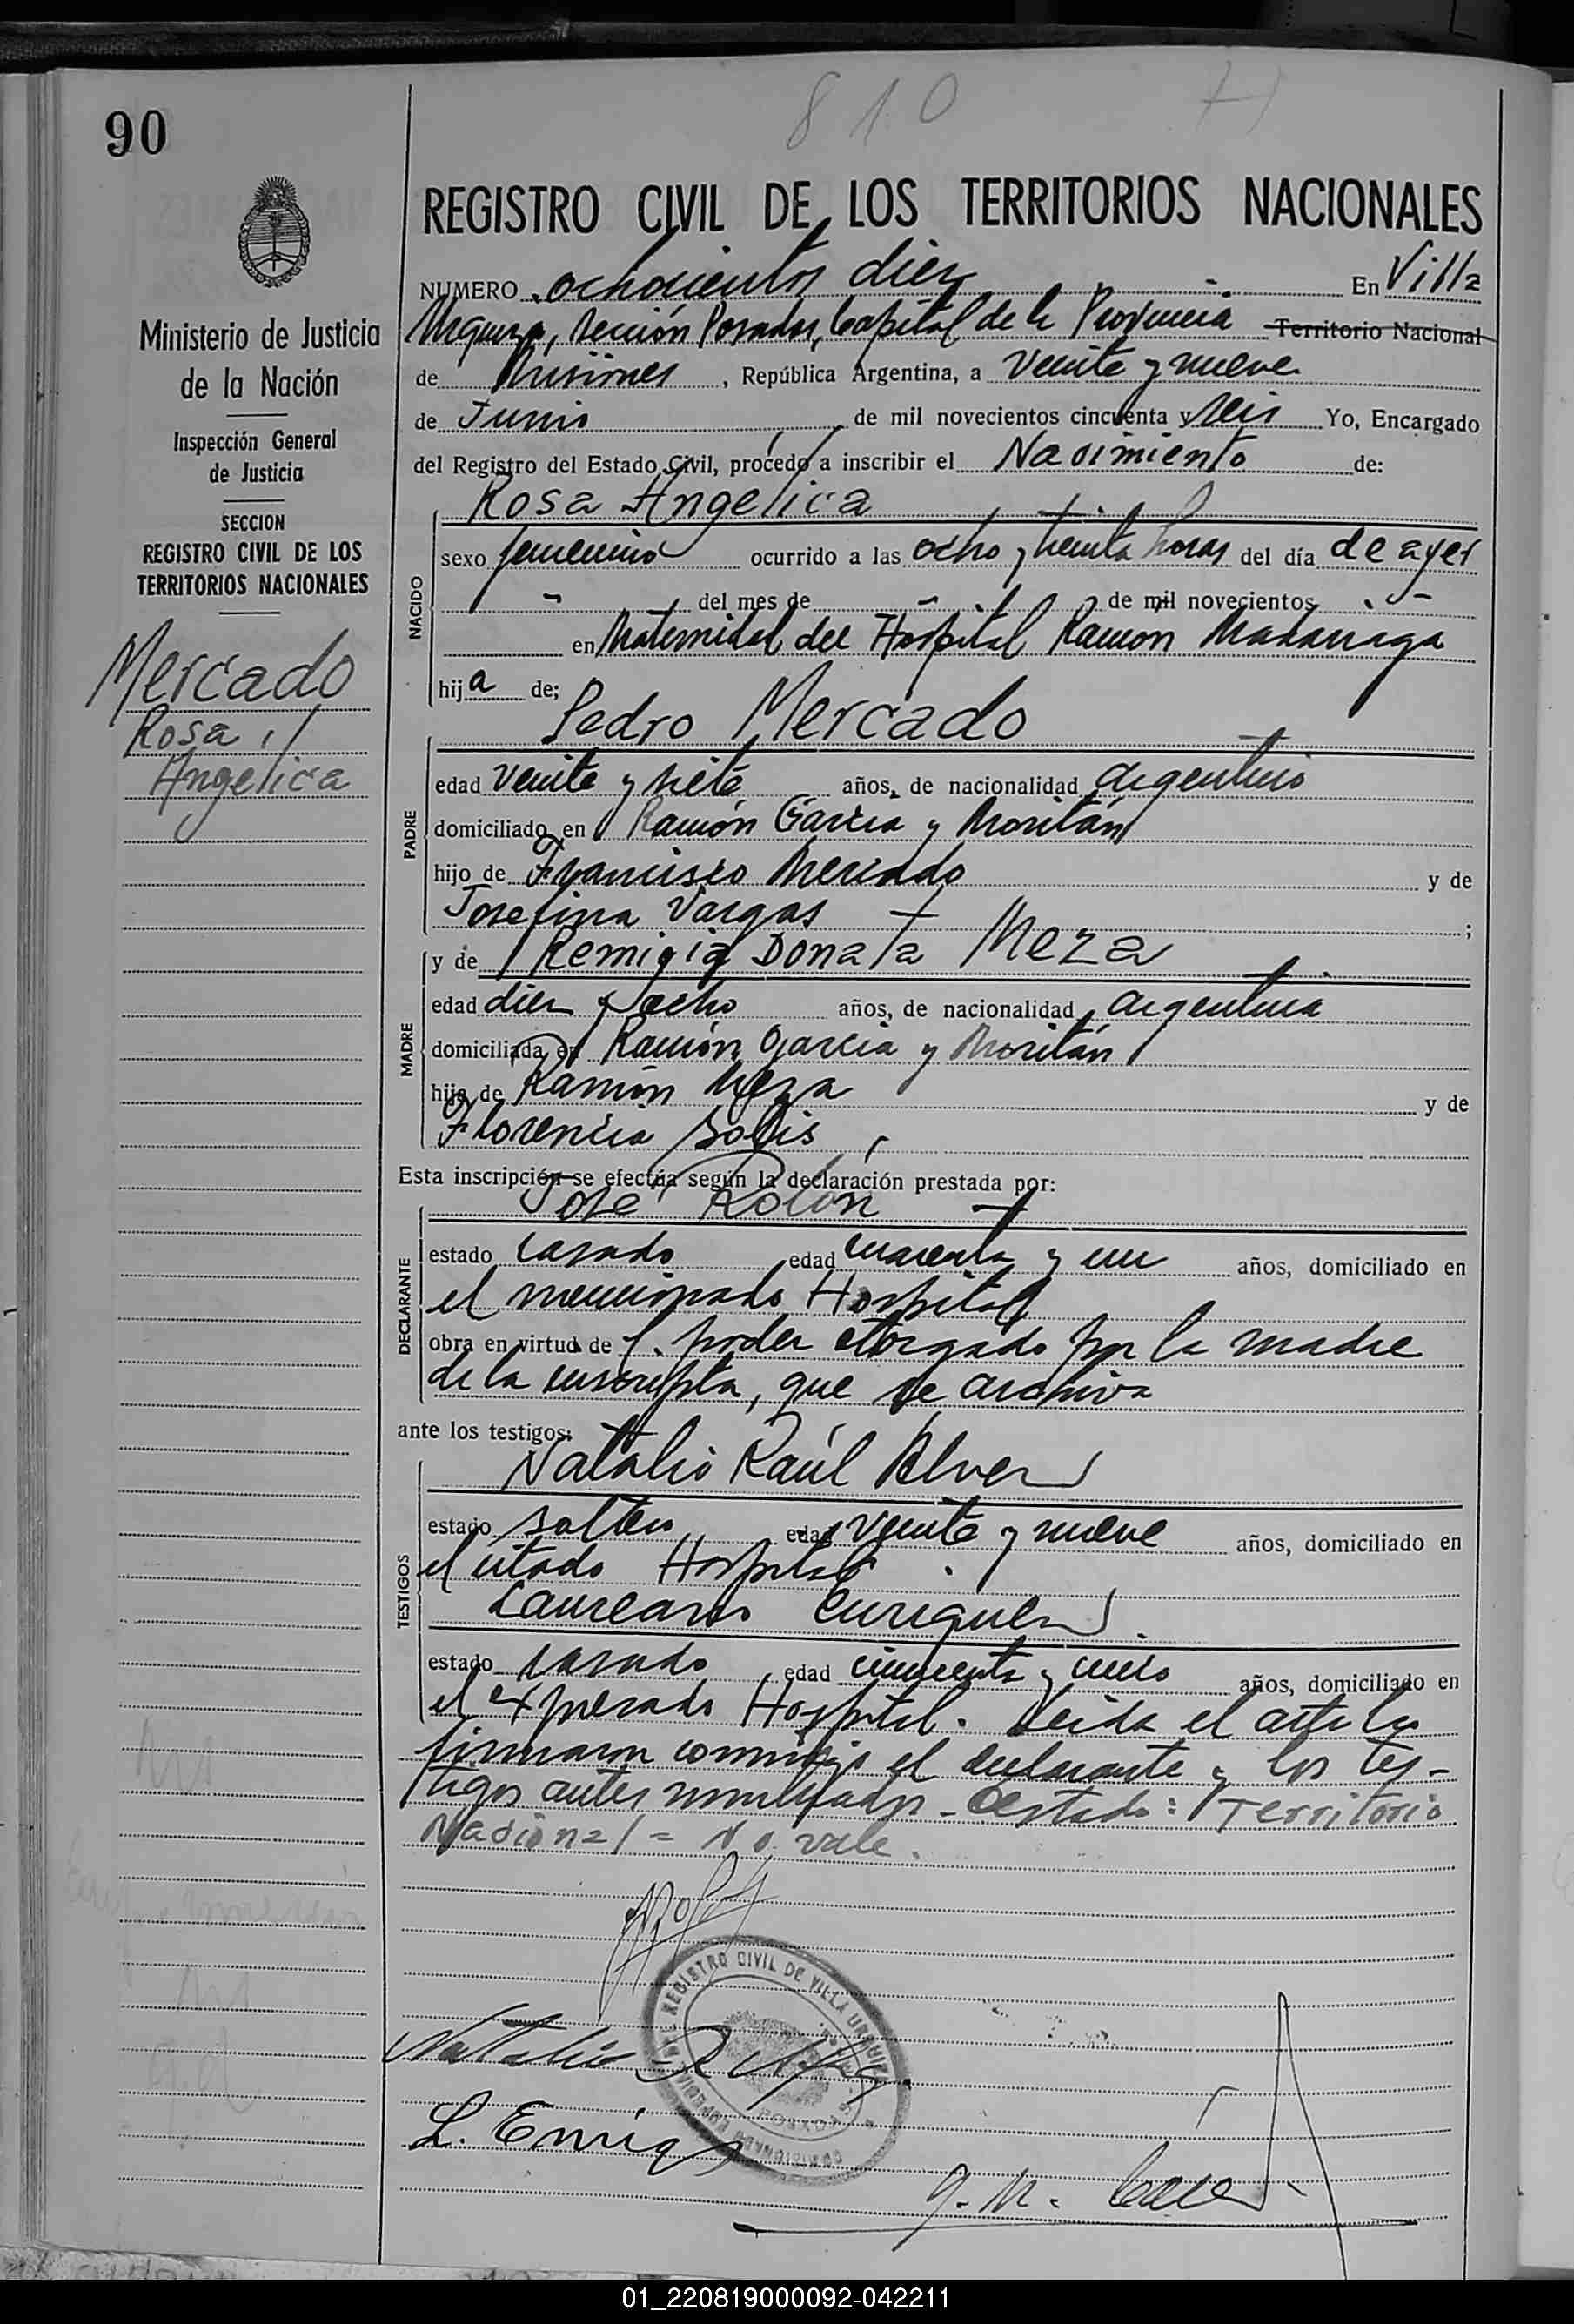 810
90
REGISTRO CIVIL DE LOS TERRITORIOS NACIONALES
Ministerio de Justicia
de la Nación
Inspección General
de Justicia
SECCION
REGISTRO CIVIL DE LOS
TERRITORIOS NACIONALES
Mercado
Rosa
Angelica
NUMERO ochocientos diez En Villa
Urquiza, Sección Posadas, Capital de la Provincia Territorio Nacional
de Misiones, República Argentina, a veinte y nueve
de Junio de mil novecientos cincuenta y seis Yo, Encargado
del Registro del Estado Civil, procedo a inscribir el Nacimiento de:
Rosa Angelica
NACIDO
sexo femenino ocurrido a las ocho y treinta horas del día de ayer
del mes de de mil novecientos
en Maternidad del Hospital Ramón Madariaga
hija de;
Pedro Mercado
PADRE
edad veinte y siete años, de nacionalidad argentino
domiciliado en Ramón García y Moritán
hijo de Francisco Mercado y de
Josefina Vargas ;
y de Remigia Donata Meza
MADRE
edad diez y ocho años, de nacionalidad argentina
domiciliada en Ramón García y Moritán
hija de Ramón Meza y de
Florencia Solis
Esta inscripción se efectúa según la declaración prestada por:
José Rolón
DECLARANTE
estado casado edad cuarenta y un años, domiciliado en
el mencionado Hospital
obra en virtud de l. poder otorgado por la madre
de la inscripta, que se archiva
ante los testigos:
Natalio Raúl Alvez
TESTIGOS
estado soltero edad veinte y nueve años, domiciliado en
el citado Hospital
Laureano Enriquez
estado casado edad cincuenta y cinco años, domiciliado en
el expresado Hospital. Leida el acta la
firmaron conmigo el declarante y los tes-
tigos antes nombrados - Testado: Territorio
Nacional = No vale.
REGISTRO CIVIL DE VILLA URQUIZA
Natalio R
L. Enriq
01_220819000092-042211